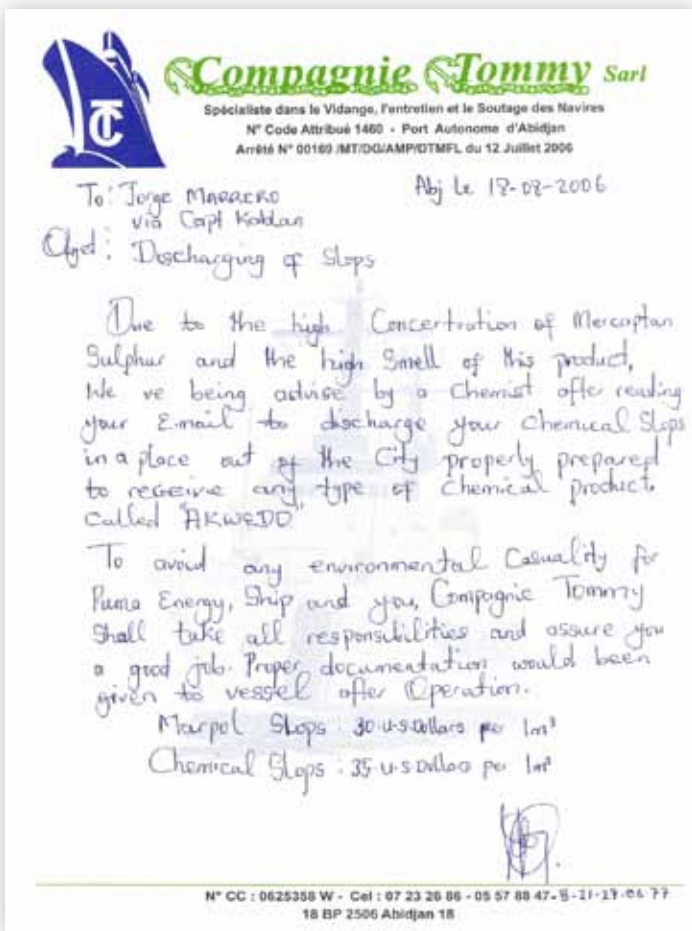 TC
Compagnie Tommy Sarl
Spécialiste dans le Vidange, l'entretien et le Soutage des Navires
N° Code Attribué 1460 - Port Autonome d'Abidjan
Arrêté N° 00169 /MT/DG/AMP/DTMFL du 12 Juillet 2006
Abj Le 18-08-2006
To: Jorge MARRERO
via Capt Kablan
Objet: Discharging of Slops
Due to the high Concertration of Mercaptan
Sulphur and the high Smell of this product,
We ve being advise by a Chemist after reading
your E.mail to discharge your Chemical Slops
in a place out of the City properly prepared
to receive any type of Chemical product.
Called "AKWEDO"
To avoid any environmental Casuality for
Puma Energy, Ship and you, Compagnie Tommy
Shall take all responsibilities and assure you
a good job. Proper documentation would been
given to vessel after Operation.
Marpol Slops : 30 U.S Dollars per 1m³
Chemical Slops : 35 U.S Dollars per 1m³
N° CC : 0625358 W - Cel : 07 23 26 86 - 05 57 88 47
18 BP 2506 Abidjan 18